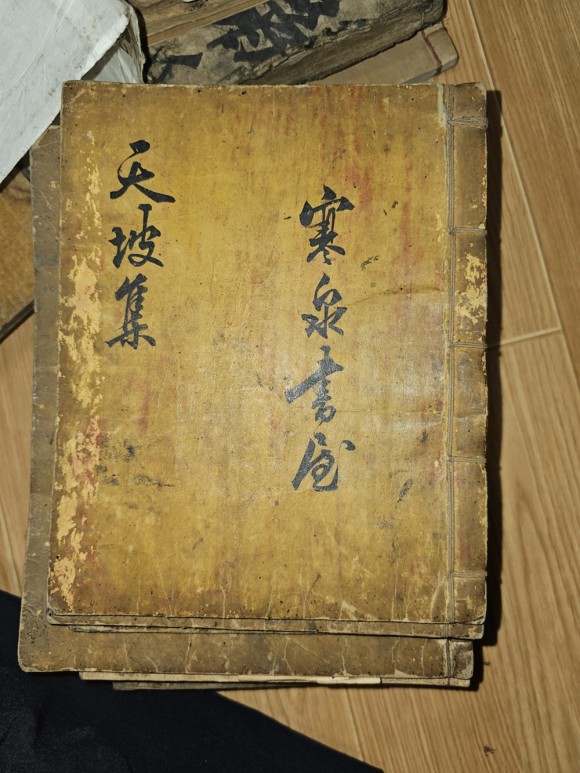 寒泉書屋
天坡集